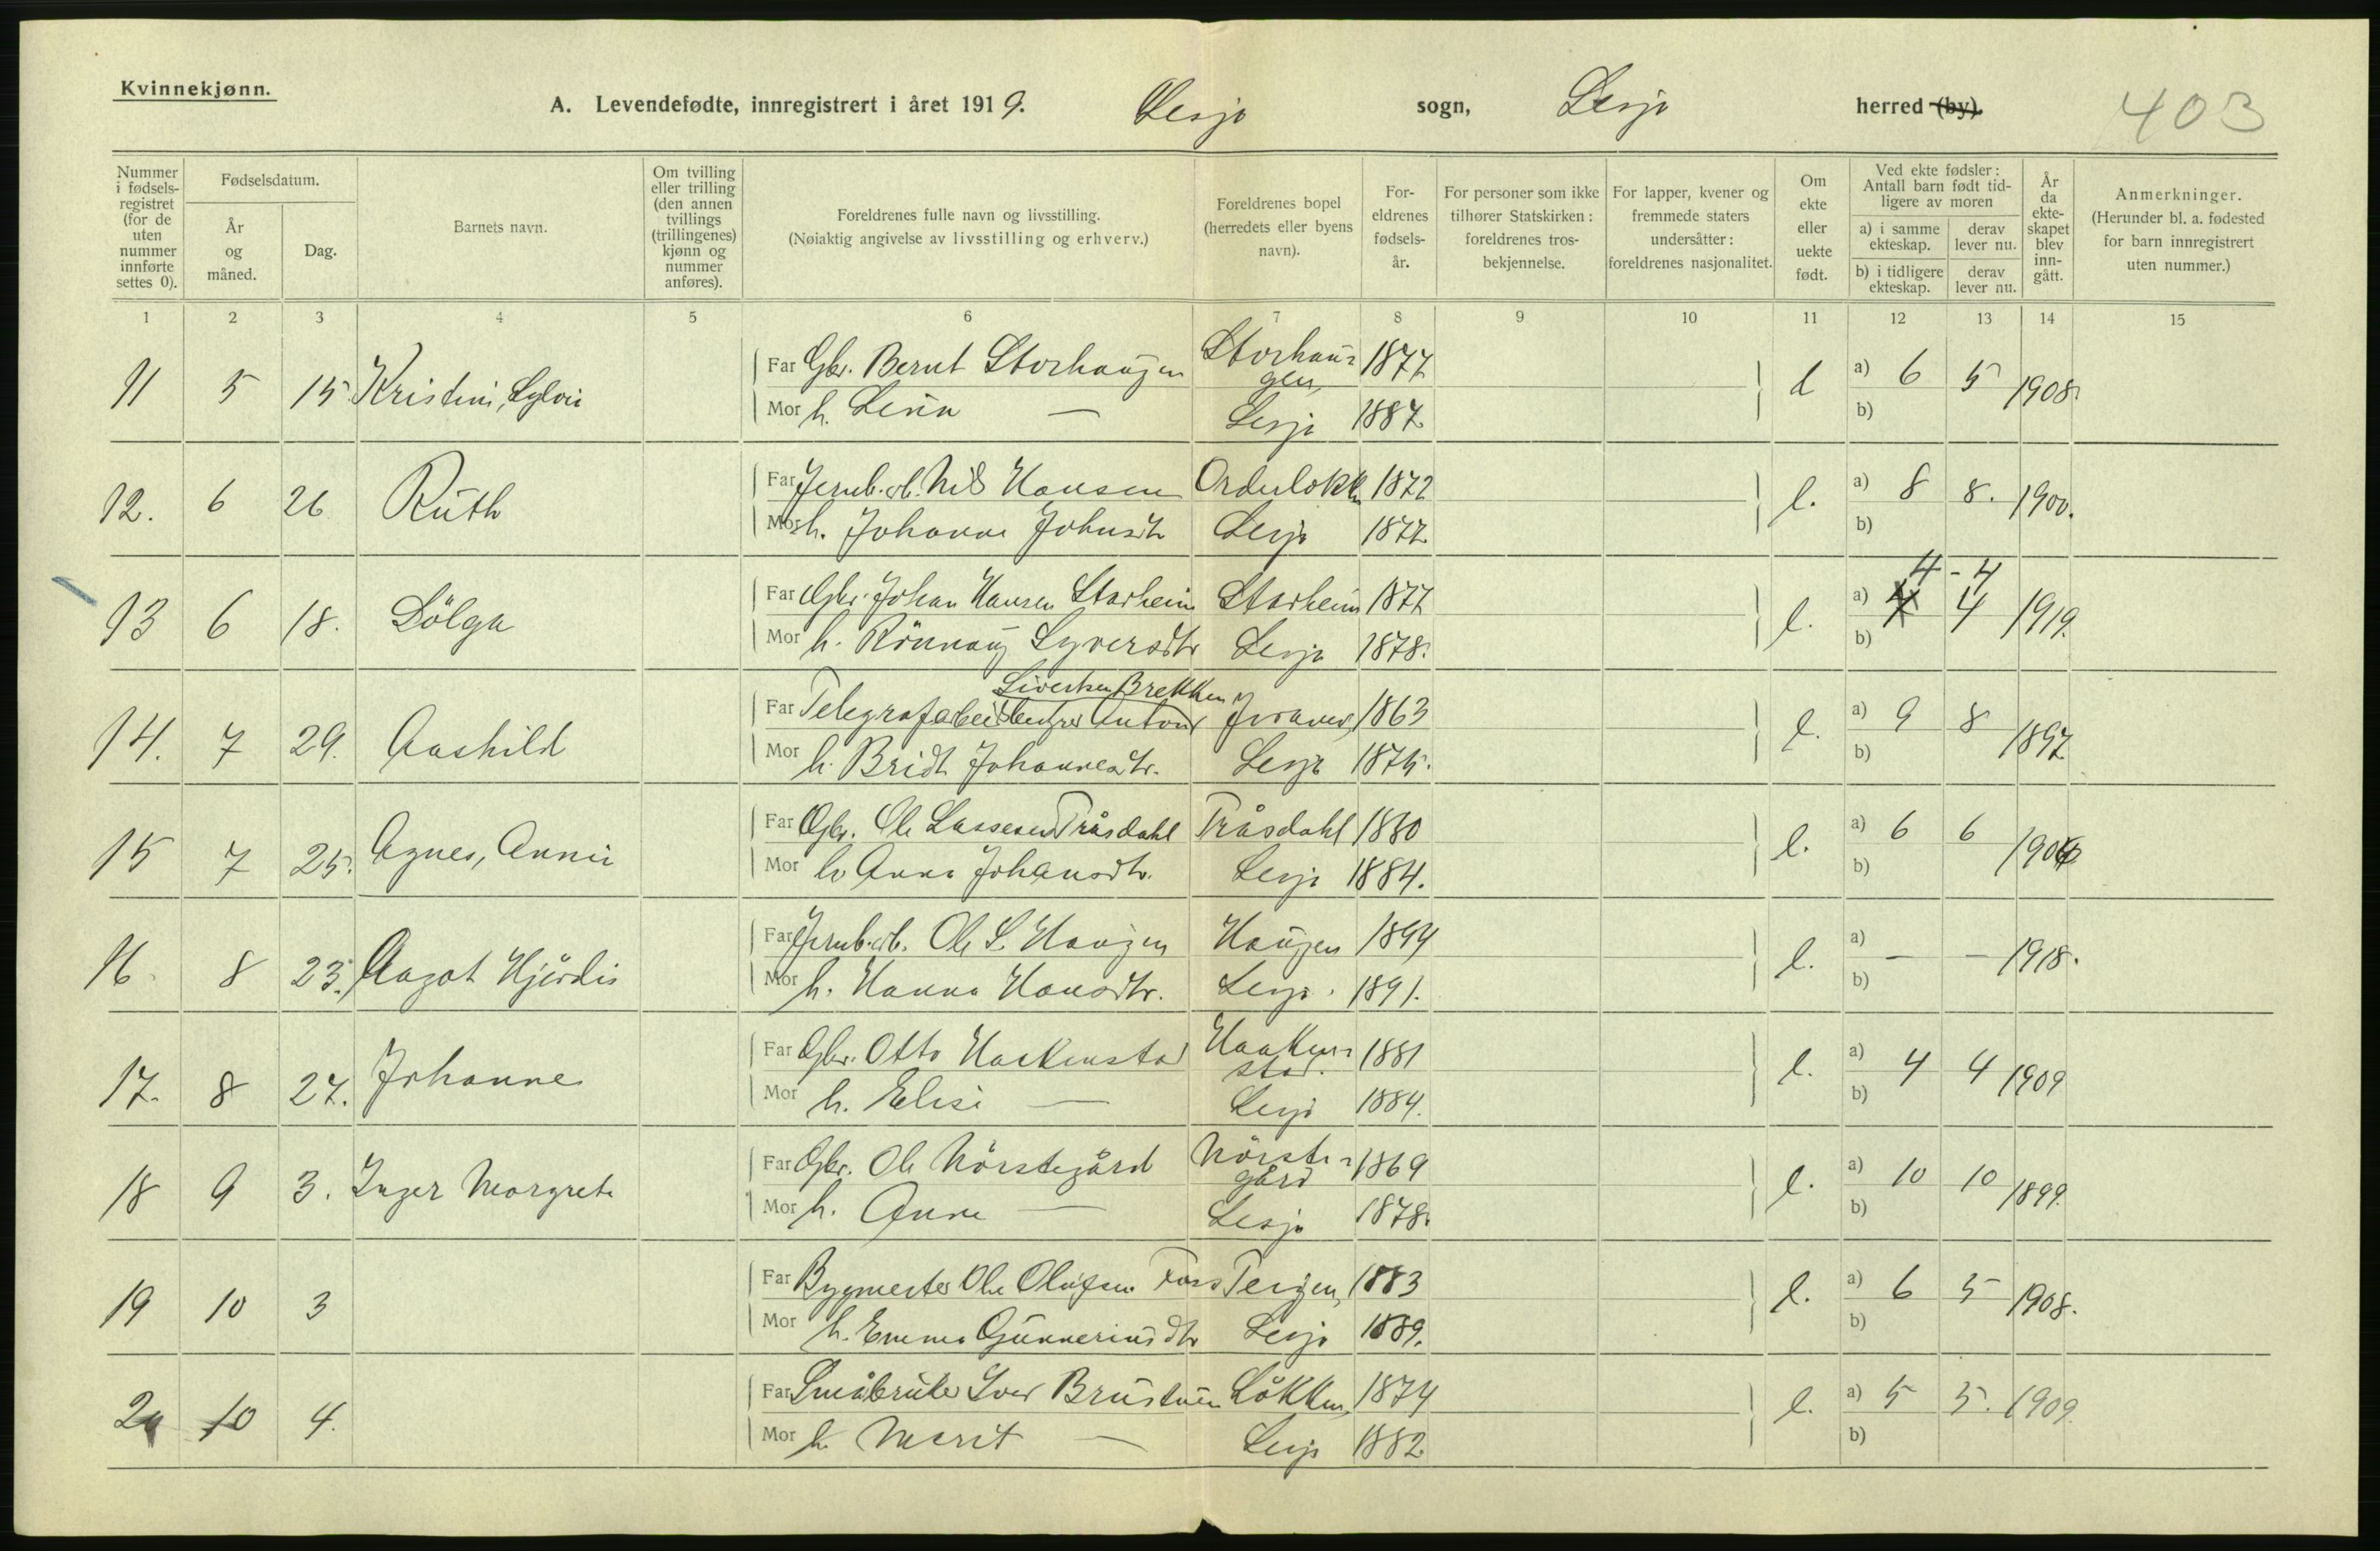 Kvinnekjønn.
A. Levendefødte, innregistrert i året 1919. Lesja sogn, Lesja herred (by). 403
Nummer i fødsels-registret (for de uten nummer innførte settes 0).
Fødselsdatum.
År og måned.
Dag.
Barnets navn.
Om tvilling eller trilling (den annen tvillings (trillingenes) kjønn og nummer anføres).
Foreldrenes fulle navn og livsstilling.
(Nøiaktig angivelse av livsstilling og erhverv.)
Foreldrenes bopel (herredets eller byens navn).
For-eldrenes fødsels-år.
For personer som ikke tilhører Statskirken: foreldrenes tros-bekjennelse.
For lapper, kvener og fremmede staters undersåtter: foreldrenes nasjonalitet.
Om ekte eller uekte født.
Ved ekte fødsler: Antall barn født tid-ligere av moren
a) i samme ekteskap. derav lever nu.
b) i tidligere ekteskap. derav lever nu.
År da ekte-skapet blev inn-gått.
Anmerkninger.
(Herunder bl. a. fødested for barn innregistrert uten nummer.)
1 2 3 4 5 6 7 8 9 10 11 12 13 14 15
11 5 15 Kristine, Sylvia Far Gbr. Bernt Storhaugen Storhau-gen, 1877 a) 6 5 1908.
Mor h. Lesja 1887. b)
12. 6 26 Ruth Far Jernb.arb. Nils Hansen 1872 l. a) 8 8. 1900.
Mor h. Johanne Johnsdtr Lesja 1877. b)
4 - 4
13 6 18. Sölga Far Gbr. Johan Hansen Storheim Storheim 1877 l. a) 4 4 1919.
Mor h. Rönnaug Syversdtr Lesja 1878. b)
Sivertsen Brekken
14. 7 29. Aashild Far Anton 1863 l. a) 9 8 1897
Mor h. Bridt Johannesdtr. Lesja 1875. b)
15 7 25. Agnes, Annie Far Gbr. Ole Lassesen Tråsdahl Tråsdahl 1880 l. a) 6 6
Mor h. Anna Johansdtr. Lesja 1884. b)
16 8 23. Aagot Hjördis Far Jernb.arb. Ole S. Haugen Haugen 1894 l. a) - - 1918.
Mor h. Hanna Hansdtr. Lesja. 1891. b)
17. 8 27. Johanne Far Gbr. Otto Haakenstad Haaken-stad. 1881 l. a) 4 4 1909
Mor h. Elise — Lesja 1884. b)
18 9 3. Inger Margrete Far Gbr. Ole Nörstegård Nörste-gård 1869 l. a) 10 10 1899.
Mor h. Anne — Lesja 1878. b)
19 10 3 Far Bygmester Ole Olufsen Foss 1883 l. a) 6 5 1908.
Mor h. Emma Gunneriusdtr Lesja 1889. b)
20 10 4. Far Småbruker Iver Brustuen Lökken, 1874 l. a) 5 5. 1909.
Mor h. Marit — Lesja 1882 b)